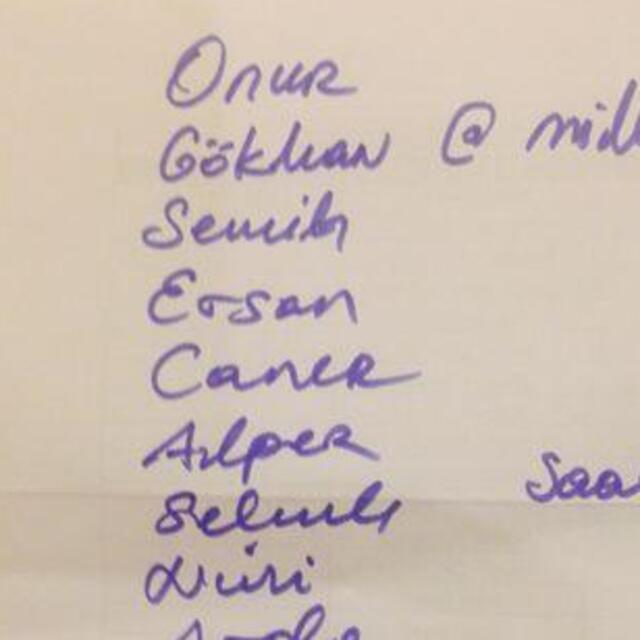 Onur
Gökhan @
Semih
Ersan
Caner
Alper
Selçuk
Nuri